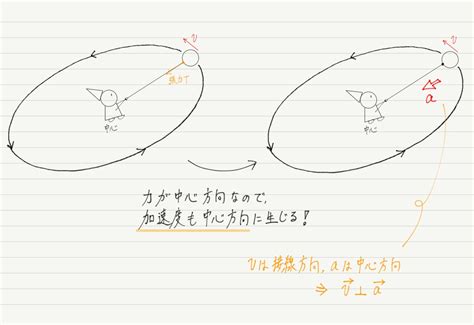 v
張力T
中心
v
a
中心
力が中心方向なので、
加速度も中心方向に生じる!
vは接線方向, aは中心方向
⇒ v⃗ ⊥ a⃗